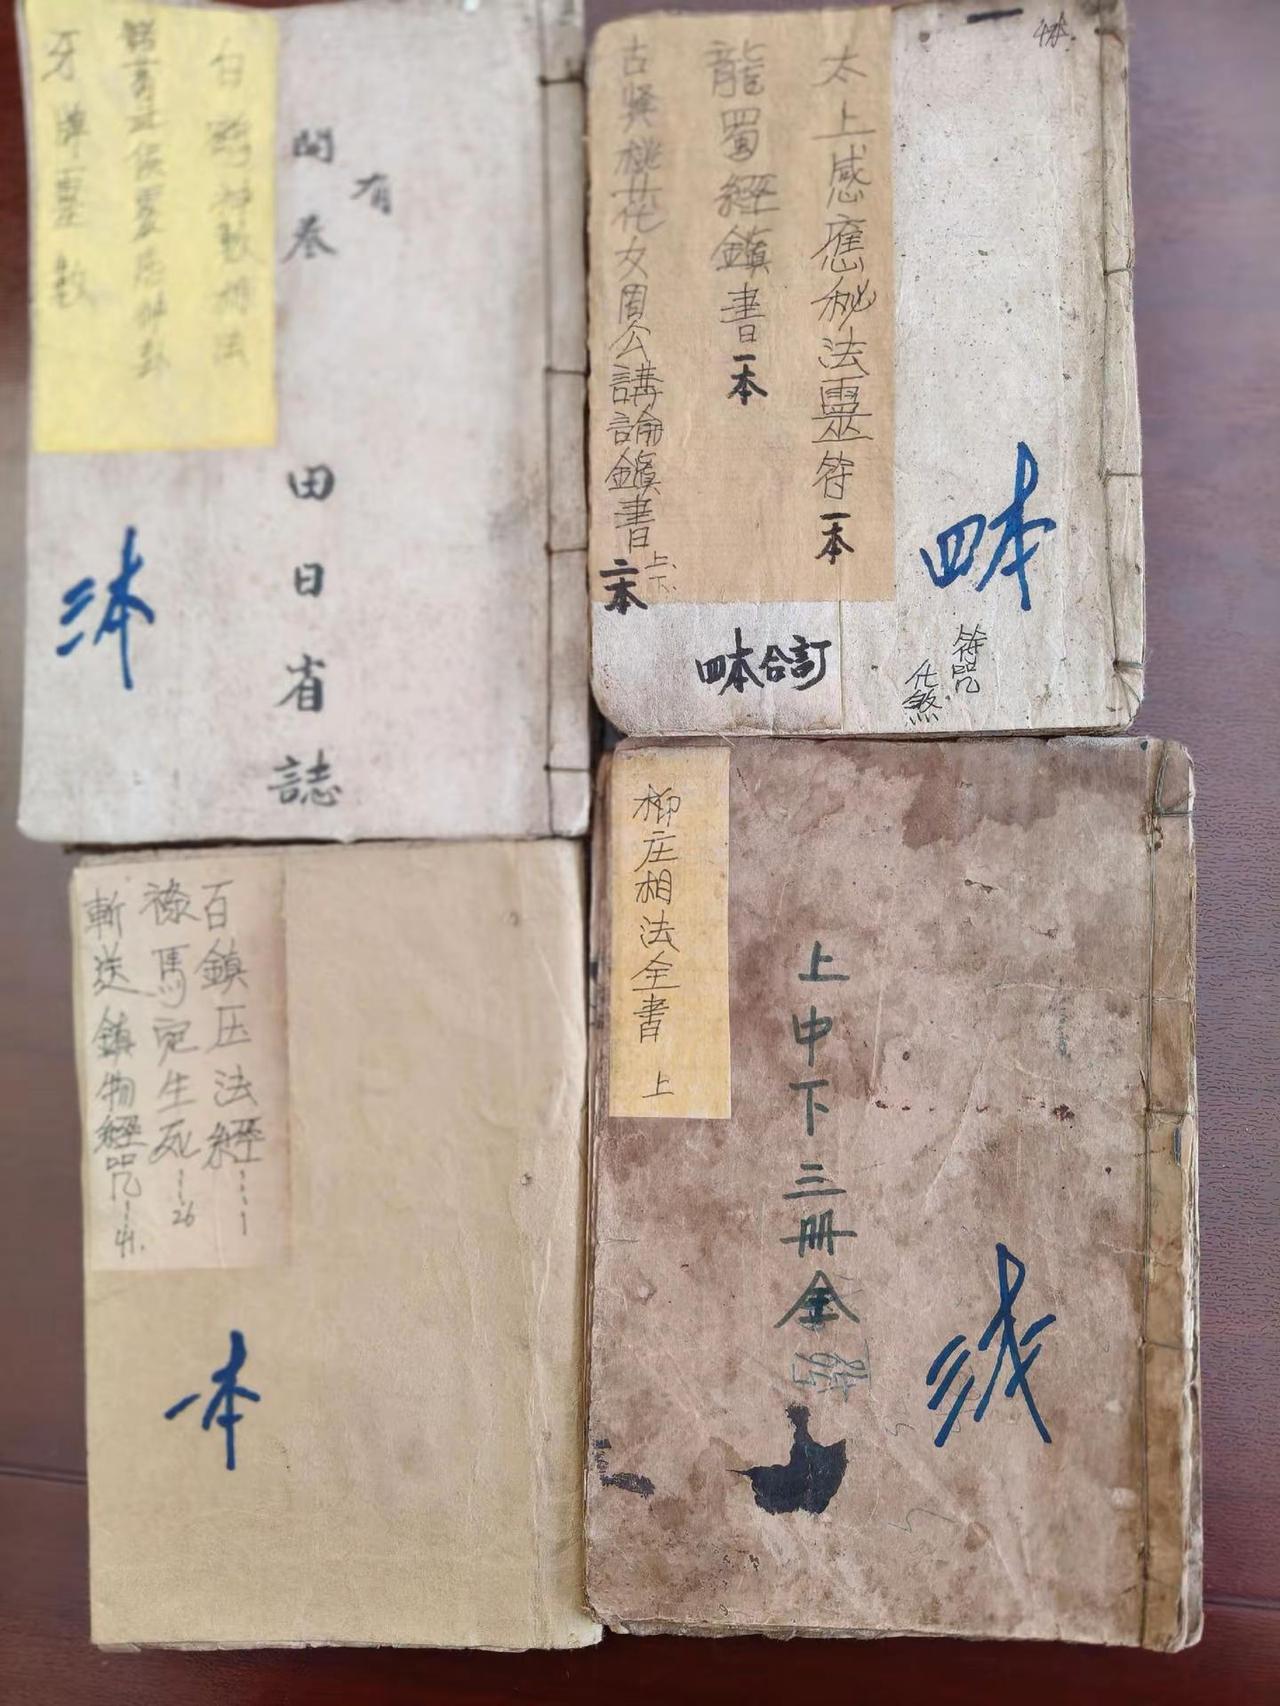 白鹤神数相法
牙牌靈數
開卷
有
田日省誌
三本
太上感應秘法靈符一本
龍蜀經鎮書一本
古異桃花女周公講論鎮書上下二本
四本合訂
四本
符咒
化煞
百鎮压法經---1
祿馬定生死--26
斬送鎮物經咒--41.
一本
柳庄相法全書 上
上中下三册全
三本